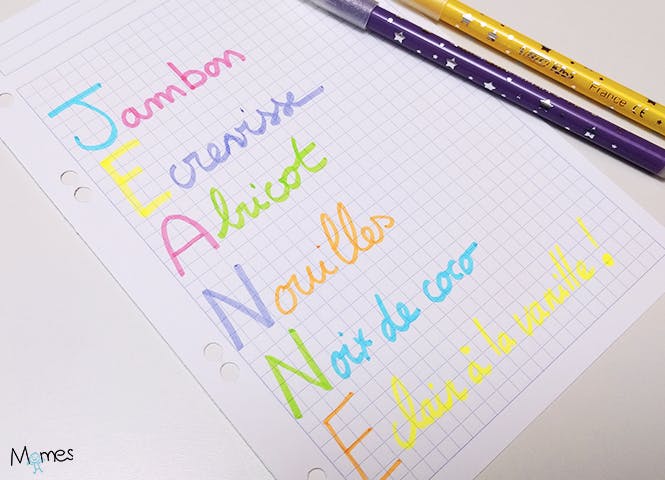 Jambon
Ecrevisse
Abricot
Nouilles
Noix de coco
Eclair à la vanille !
France CE
Momes